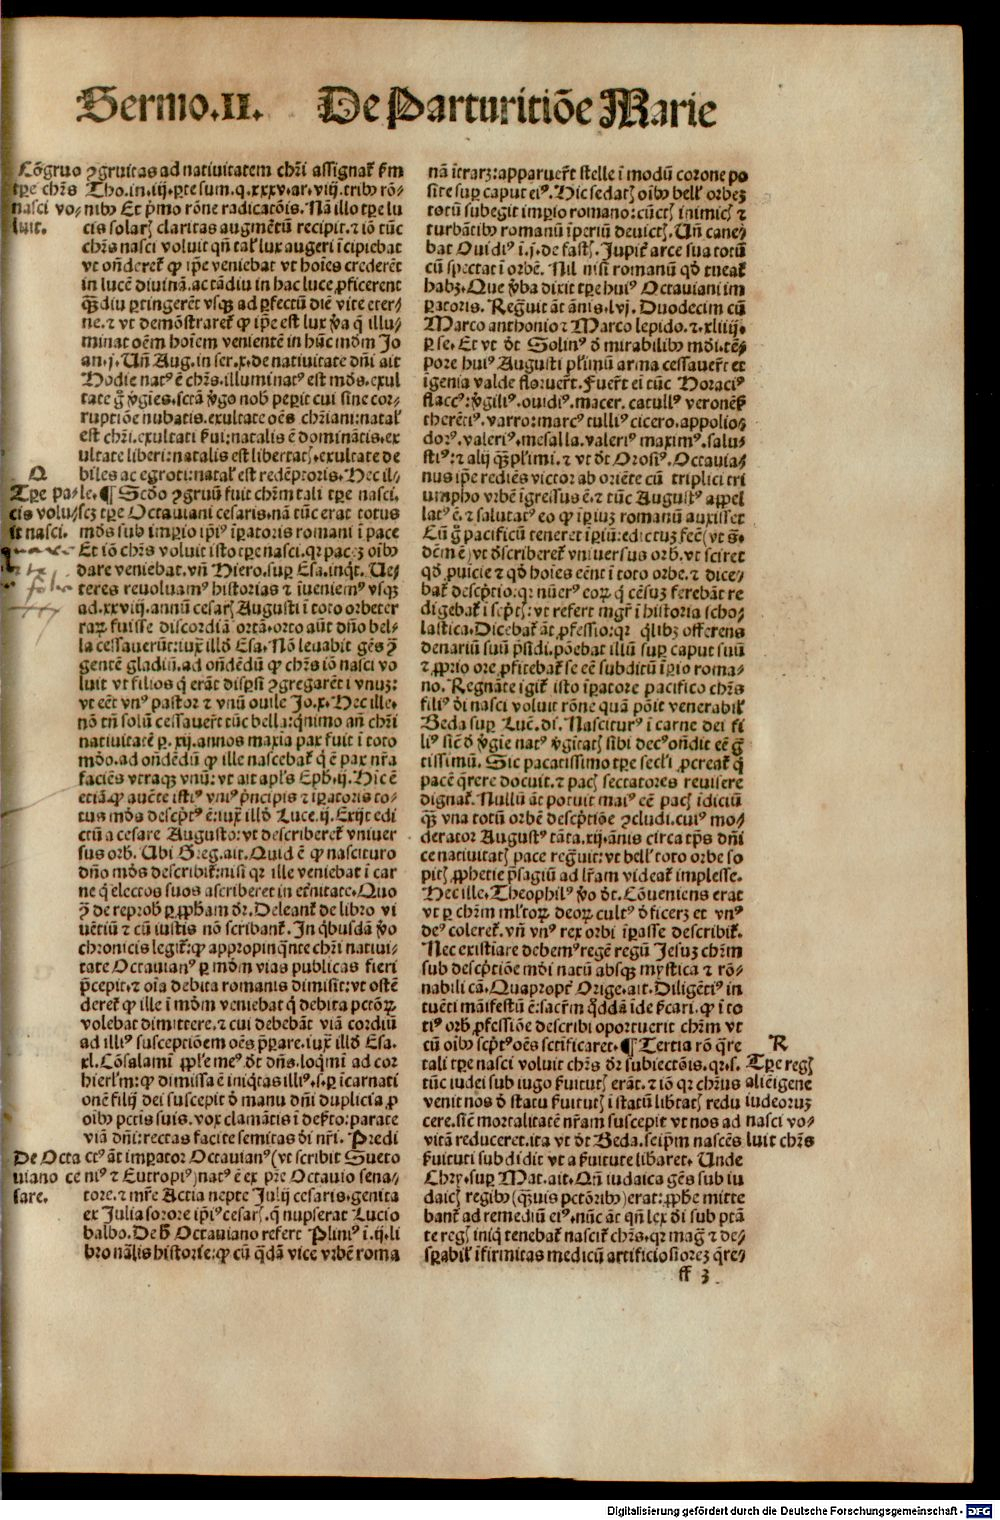 Sermo.II. De Parturitiōe Marie
Cōgruo
tꝑe chr̄s
nasci vo-
luit.
ꝯgruitas ad natiuitatem chr̄i assignat̃ fm
Tho.in.iij.ꝑte sum.q.xxxv.ar.viij.tribꝰ rō-
nibꝰ Et p̄mo rōne radicatōis. Nā illo tꝑe lu
cis solarꝭ claritas augmētū recipit.⁊ iō tūc
chr̄s nasci voluit qn̄ tal̓ lux augeri īcipiebat
vt on̄deret̃ ꝙ ip̄e veniebat vt hoīes crederēt
in lucē diuinā.ac tādiu in hac luce ꝓficerent
qꝫdiu ꝑtingerēt vsqꝫ ad ꝑfectū diē vite eter-
ne.⁊ vt demōstraret̃ ꝙ ip̄e est lux v̄a q̄ illu-
minat oēm hoīem venientē in hūc mōm Jo
an.j. Un̄ Aug.in ser.x.de natiuitate dn̄i ait
Hodie natꝰ ē chr̄s.illuminatꝰ est mōs.exul
tate g̊ v̓gies.sctā v̓go nob̓ peꝑit cui sine cor-
ruptiōe nubatis.exultate oēs chr̄iani:natal̓
est chr̄i.exultati ẜui:natalis ē dominātis.ex
ultate liberi:natalis est libertatꝭ.exultate de
biles ac egroti:natal̓ est redēptoris. Hec il-
Q
Tꝑe pa-
cis volu-
it nasci.
le.¶ Scd̓o ꝯgruū fuit chr̄m tali tꝑe nasci.
scꝫ tꝑe Octauiani cesaris.nā tūc erat totus
mōs sub imꝑio ip̄iꝰ īꝑatoris romani ī pace
Et iō chr̄s voluit isto tꝑe nasci.qꝛ pacē oībꝰ
dare veniebat.vn̄ Hiero.suꝑ Esa.inq̄t. Ue-
teres reuoluamꝰ historias ⁊ īueniemꝰ vsqꝫ
ad.xxviij.annū cesarꝭ Augusti ī toto orbe ter
raꝝ fuisse discordiā ortā.orto aūt dn̄o bel-
la cessauerūt:iux̄ illd̓ Esa. Nō leuabit gēs ꝯ̄
gentē gladiū.ad on̄dēdū ꝙ chr̄s iō nasci vo
luit vt filios q̄ erāt disꝑsi ꝯgregarēt ī vnuꝫ:
vt eēt vnꝰ pastor ⁊ vnū ouile Jo.x. Hec ille.
nō tn̄ solū cessauer̄t tūc bella:q̄nimo an̄ chr̄i
natiuitatē ꝑ.xij.annos maxīa pax fuit ī toto
mōo.ad on̄dēdū ꝙ ille nascebat̃ q̄ ē pax nr̄a
faciēs vtraqꝫ vnū:vt ait apl̓s Eph̓.ij. Hic ē
etiā ꝙ auēte istiꝰ vniꝰ p̄ncipis ⁊ īꝑatoris to-
tus mōs descp̄tꝰ ē:iux̄ illd̓ Luce.ij.Exijt edi
ctū a cesare Augusto:vt describeret̃ vniuer
sus orb̓. Ubi Greg.ait.Quid ē ꝙ nascituro
dn̄o mōs describit̃:nisi qꝛ ille veniebat ī car
ne q̄ electos suos ascriberet in et̓nitate.Quo
ꝯ̄ de reprob̓ ꝑ ꝓph̓am d̓r. Deleant̃ de libro vi
uētiū ⁊ cū iustis nō scribant̃. In q̄busdā v̓o
chronicis legit̃:ꝙ appropinq̄nte chr̄i natiui-
tate Octauianꝰ ꝑ mōm vias publicas fieri
p̄cepit.⁊ oīa debita romanis dimisit:vt ostē
deret̃ ꝙ ille ī mōm veniebat q̄ debita pctōꝝ
volebat dimittere.⁊ cui debebāt viā cordiū
ad illiꝰ susceptiōem oēs p̄parare.iux̄ illd̓ Esa.
xl. Cōsolamī ꝓpl̓e meꝰ d̓t dn̄s.loq̄mī ad cor
hierl̓m:ꝙ dimissa ē iniq̄tas illiꝰ.s.ꝑ īcarnati
onē filij dei suscepit d̓ manu dn̄i duplicia ꝓ
oībꝰ pctis suis. vox clamātis ī des̓to:parate
viā dn̄i:rectas facite semitas d̓i nr̄i. Predi
De Octa
uiano ce
sare.
ctꝰ āt imꝑator Octauianꝰ(vt scribit Sueto
niꝰ ⁊ Eutropiꝰ)natꝰ ē ex pr̄e Octauio sena-
tore.⁊ mr̄e Actia nepte Julij cesaris.genita
ex Julia sorore ip̄iꝰ cesarꝭ.q̄ nupserat Lucio
balbo. De h̓ Octauiano refert Pliniꝰ ī.ij.li
bro nāl̓is historie:ꝙ cū q̄dā vice vrbē roma
nā ītraꝫ:apparuer̄t stelle ī modū corone po
site suꝑ caput eiꝰ. Hic sedatꝭ oībꝰ bell̓ orbeꝫ
totū subegit imꝑio romano:cūctꝭ inimicꝭ ⁊
turbātibꝰ romanū īperiū deuictꝭ. Un̄ cane-
bat Ouidiꝰ ī.j.de fastꝭ. Jupit̓ arce sua totū
cū spectat ī orbē. Nil nisi romanū qd̓ tueat̃
habꝫ. Que v̓ba dixit tꝑe huiꝰ Octauiani im
ꝑatoris. Regnt̓ āt ānis.lvj. Duodecim cū
Marco anthonio ⁊ Marco lepido.⁊.xliiij.
ꝑ se. Et vt d̓t Solinꝰ d̓ mirabilibꝰ mōi.tē-
pore huiꝰ Augusti pl̓imū arma cessauer̄t et
īgenia valde floruer̄t. Fuer̄t ei tūc Horaciꝰ
flaccꝰ:v̓giliꝰ.ouidiꝰ.macer.catullꝰ veronēs̓
therētiꝰ.varro:marcꝰ tulliꝰ cicero.appolio-
dorꝰ.valeriꝰ.mesalla.valeriꝰ maximꝰ.salu-
stiꝰ:⁊ alij qꝫpl̓imi.⁊ vt d̓t Orosiꝰ. Octauia-
nus ip̄e rediēs victor ab oriēte cū triplici tri
umpho vrbē īgressus ē.⁊ tūc Augustꝰ appel
latꝰ ē.⁊ salutatꝰ eo ꝙ īꝑiuꝫ romanū auxisset
Cū g̊ pacificū teneret īꝑiū:edictuꝫ fec̓(vt s̄-
dēm ē)vt d̓scriberet̃ vniuersus orb̓.vt sciret
qd̓ ꝓuīcie ⁊ qd̓ hoīes eēnt ī toto orbe.⁊ dice-
bat̃ descp̄tio:qꝛ nūerꝰ eoꝝ q̄ cēsuꝫ ferebāt re
digebat̃ ī scp̄tꝭ:vt refert mgr̄ ī historia scho-
lastica. Dicebat̃ āt ꝓfessio:qꝛ q̄libꝫ offerens
denariū suū p̄sidi.pōebat illū suꝑ caput suū
⁊ ꝓprio ore ꝓfitebat̃ se eē subditū īꝑio roma-
no. Regnāte igit̃ isto īꝑatore pacifico chr̄s
filiꝰ d̓i nasci voluit rōne quā pōit venerabil̓
Beda suꝑ Luc̄.di. Nasciturꝰ ī carne dei fi
liꝰ sic̄ d̓ v̓gie natꝰ v̓gītatꝭ sibi decꝰ on̄dit eē g̓
tissimū. Sic pacatissimo tꝑe secl̓i ꝓcreat̃ q̄
pacē q̄rere docuit.⁊ pacꝭ sectatores reuisere
dignat̃. Nullū āt potuit maiꝰ eē pacꝭ īdiciū
qꝫ vna totū orbē descp̄tiōe ꝯcludi.cuiꝰ mo-
derator Augustꝰ tāta.xij.ānis circa tp̄s dn̄i
ce natiuitatꝭ pace regnt̓:vt bell̓ toto orbe so
pitꝭ ꝓphetie p̄sagiū ad lr̄am videat̃ implesse.
Hec ille. Theophilꝰ v̓o d̓t. Cōueniens erat
vt ꝑ chr̄m ml̓toꝝ deoꝝ cultꝰ d̓ficeret et vnꝰ
deꝰ coleret̃.vn̄ vnꝰ rex orbi īpasse describit̃.
Nec existiare debemꝰ regē regū Jesuꝫ chr̄m
sub descp̄tiōe mōi natū absqꝫ mystica ⁊ rō-
nabili cā. Quapropt̓ Orige.ait. Diligētiꝰ in
tuēti māifestū ē:sacr̄m q̄ddā īde ẜcari.ꝙ ī to
tiꝰ orb̓ ꝓfessiōe describi oportuerit chr̄m vt
cū oībꝰ scp̄tꝰ oēs sctificaret.¶ Tertia rō q̄re
R
Tꝑe regꝭ
alienigene
iudeoruꝫ
nasci vo-
luit chr̄s
tali tꝑe nasci voluit chr̄s d̓r subiectōis.qꝛ.s.
tūc iudei sub iugo ẜuitutꝭ erāt.⁊ iō qꝛ chr̄us
venit nos d̓ statu ẜuitutꝭ ī statū lib̓tatꝭ redu
cere.sic̄ mortalitatē nr̄am suscepit vt nos ad
vitā reduceret.ita vt d̓t Beda.seip̄m nascēs
ẜuituti subdidit vt a ẜuitute lib̓aret. Unde
Chry.suꝑ Mat.ait. Qn̄ iudaica gēs sub iu
daicꝭ regibꝰ(qꝫuis pctōribꝰ)erat:ꝓph̓e mitte
bant̃ ad remediū eiꝰ.nūc āt qn̄ lex d̓i sub ptā
te regꝭ iniq̄ tenebat̃ nascit̃ chr̄s.qꝛ mag̓ ⁊ de-
sꝑabil̓ īfirmitas medicū artificiosioreꝫ q̄re-
ff 3
Digitalisierung gefördert durch die Deutsche Forschungsgemeinschaft - DFG